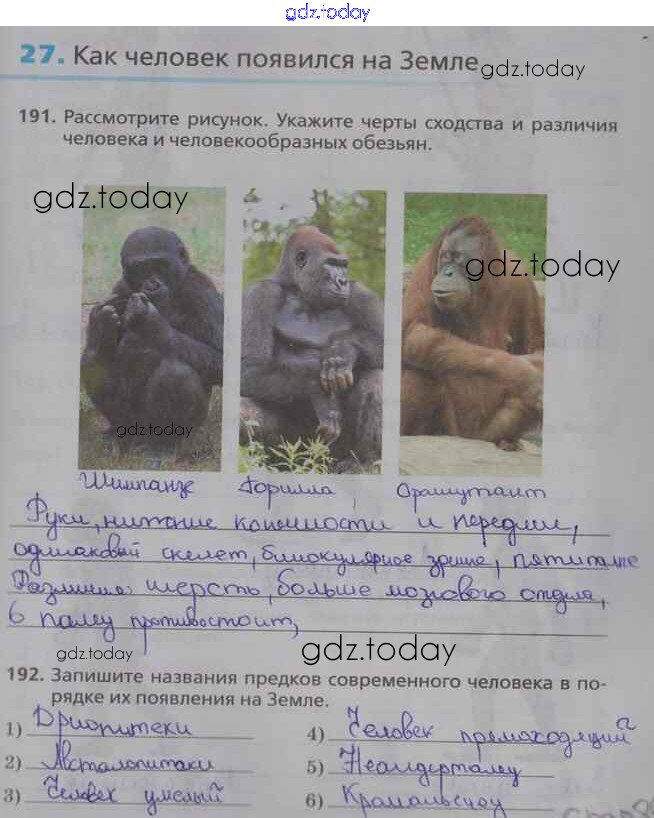 gdz.today
27. Как человек появился на Земле
gdz.today
191. Рассмотрите рисунок. Укажите черты сходства и различия
человека и человекообразных обезьян.
gdz.today
gdz.today
gdz.today
Шимпанзе Горилла Орангутанг
Руки, нижние конечности и передние,
одинаковый скелет, бинокулярное зрение,
Различия: шерсть, больше мозгового отдела,
6 палец противостоит,
gdz.today
gdz.today
192. Запишите названия предков современного человека в по-
рядке их появления на Земле.
1) Дриопитеки
2) Австралопитеки
3) Человек умелый
4) Человек прямоходящий
5) Неандерталец
6) Кроманьонец